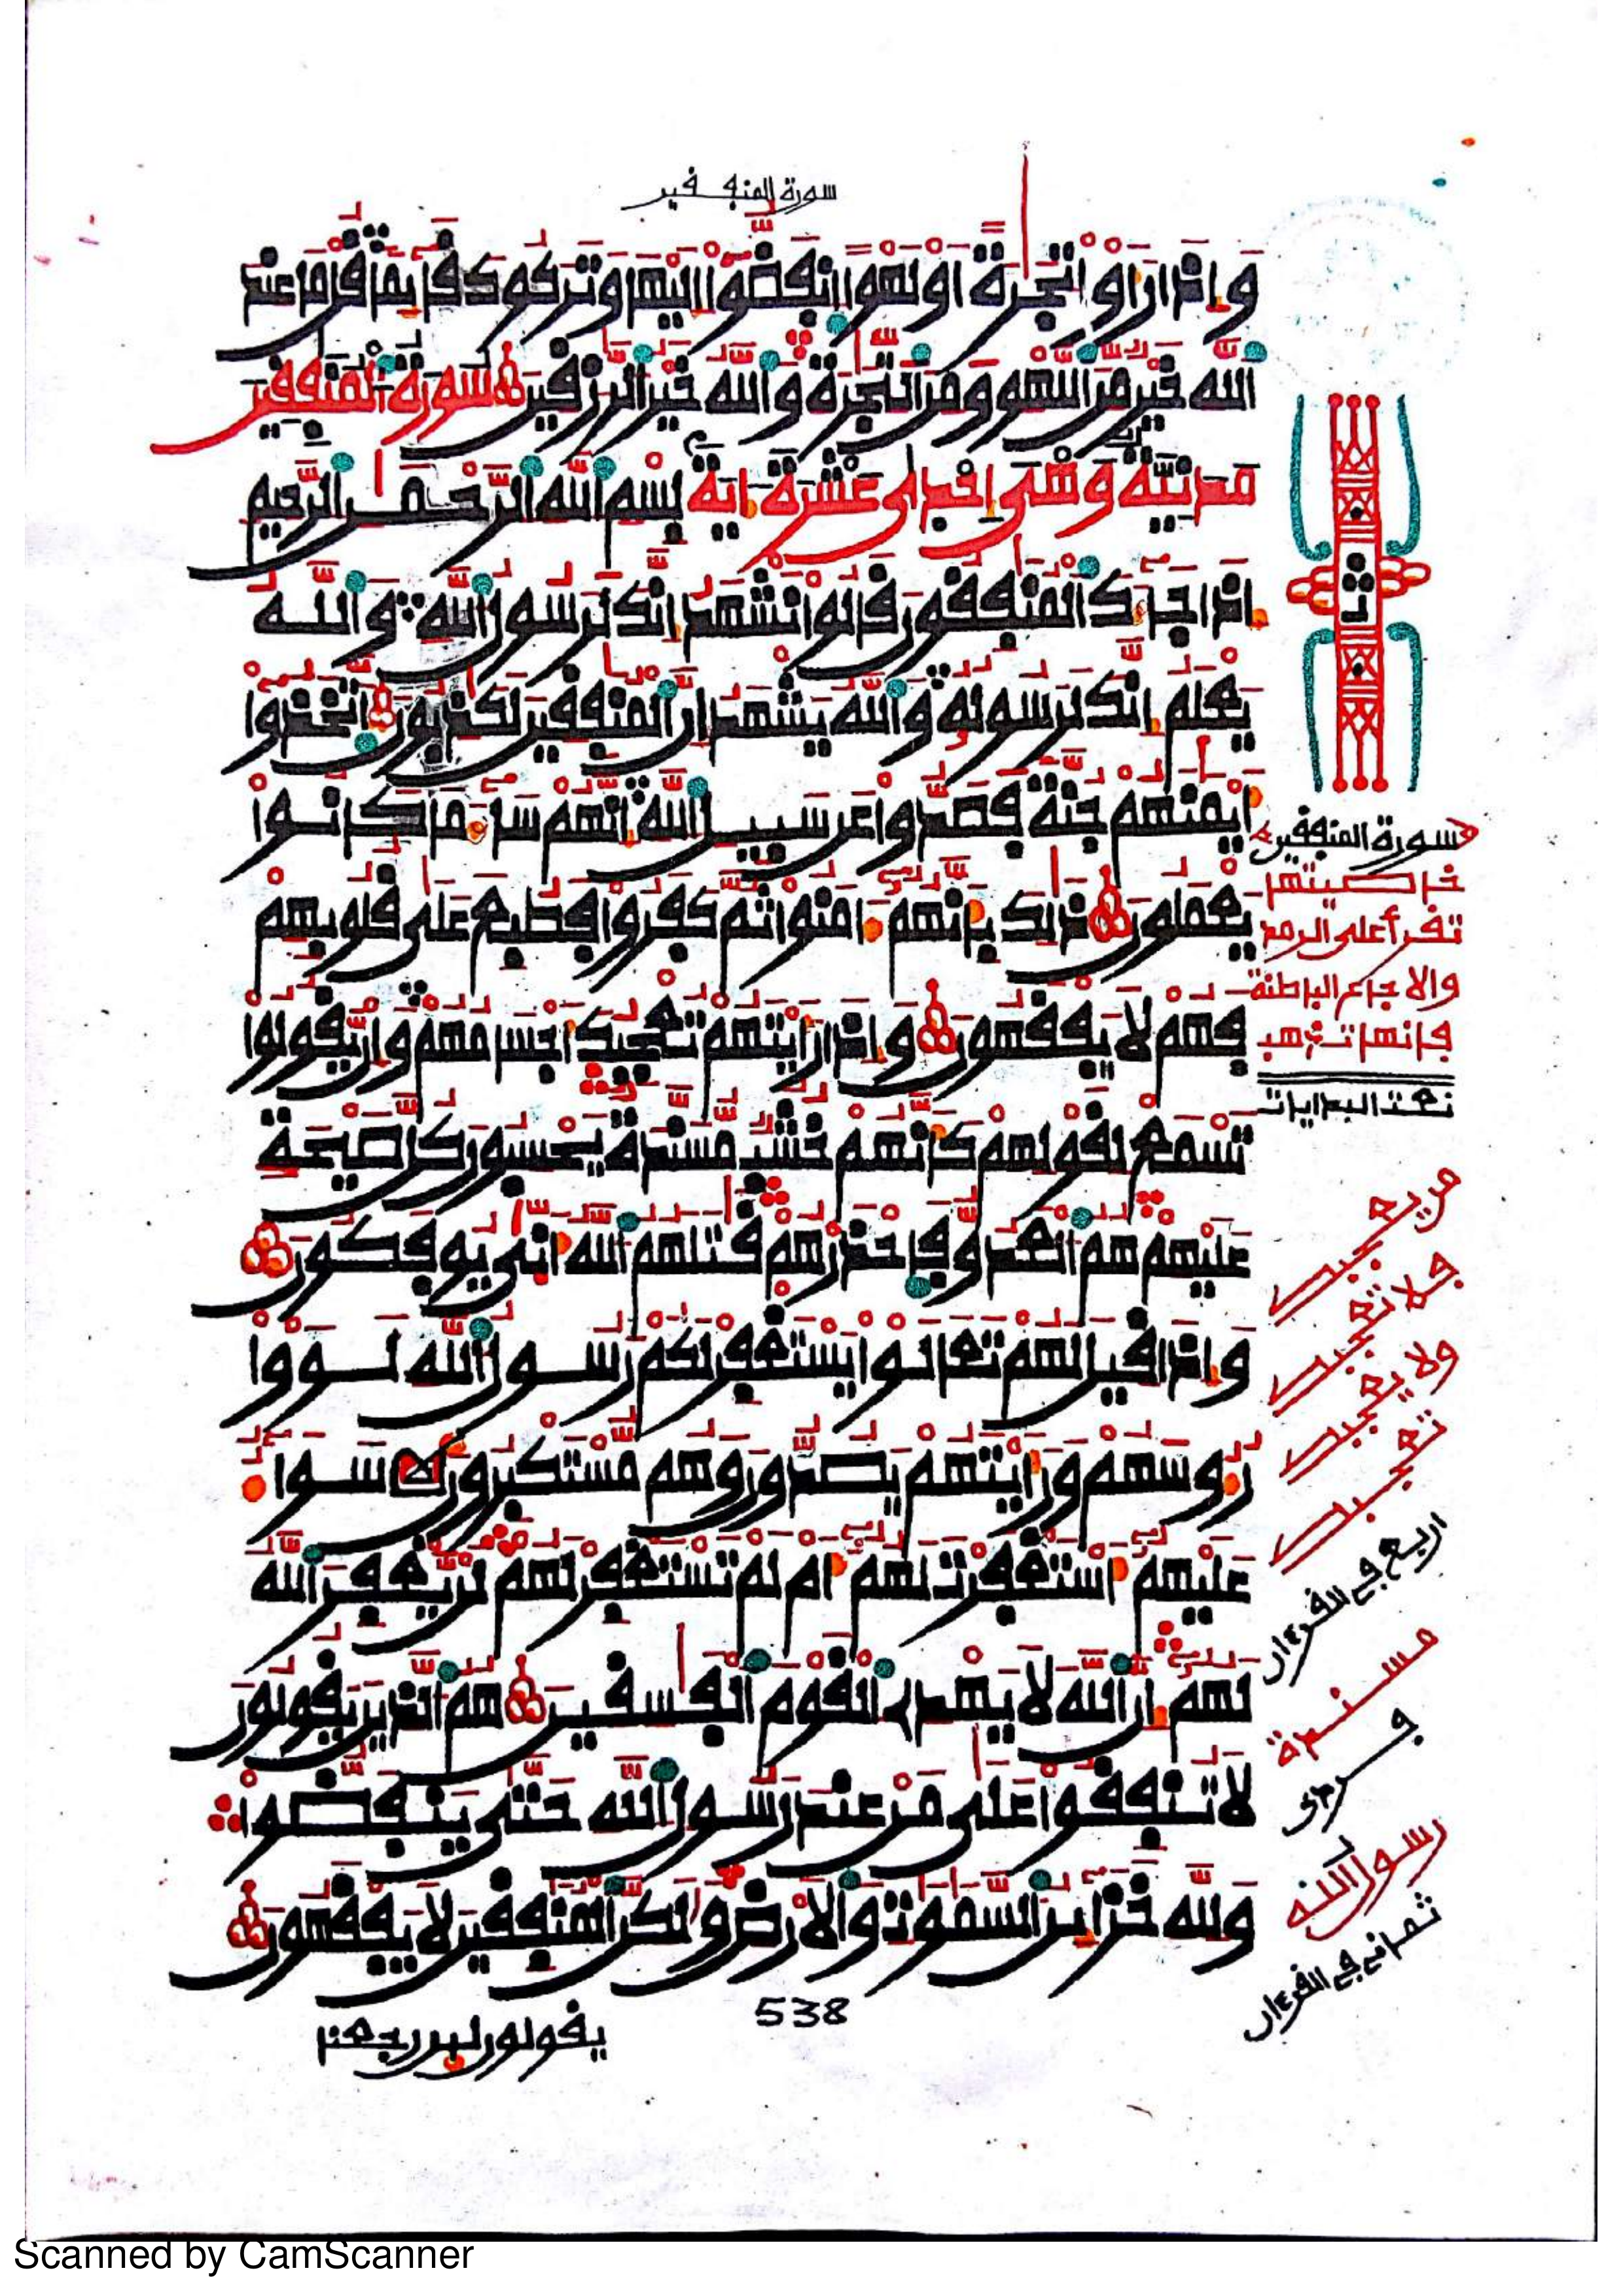 سورة المنفقين
وإذا رأوا تجرة أو لهوا انفضوا إليها وتركوك قائما قل ما عند
الله خير من اللهو ومن التجرة والله خير الرزقين سورة المنفقين
مدنية وهي إحدى عشرة ءاية بسم الله الرحمن الرحيم
إذا جاءك المنفقون قالوا نشهد إنك لرسول الله والله
يعلم إنك لرسوله والله يشهد إن المنفقين لكذبون اتخذوا
أيمنهم جنة فصدوا عن سبيل الله إنهم ساء ما كانوا
يعملون ذلك بأنهم ءامنوا ثم كفروا فطبع على قلوبهم
فهم لا يفقهون وإذا رأيتهم تعجبك أجسامهم وإن يقولوا
تسمع لقولهم كأنهم خشب مسندة يحسبون كل صيحة
عليهم هم العدو فاحذرهم قتلهم الله أنى يوفكون
وإذا قيل لهم تعالوا يستغفر لكم رسول الله لووا
رءوسهم ورأيتهم يصدون وهم مستكبرون سواء
عليهم أستغفرت لهم أم لم تستغفر لهم لن يغفر الله
لهم إن الله لا يهدي القوم الفسقين هم الذين يقولون
لا تنفقوا على من عند رسول الله حتى ينفضوا
ولله خزائن السموت والأرض ولكن المنفقين لا يفقهون
538
يقولون لين رجعنا
سورة المنفقين
خاصيتها
تقرأ على الرمد
والاوجاع الباطنة
فإنها تذهب
اربع في القرءان
مسندة
رسول الله
ثماني في القرءان
Scanned by CamScanner